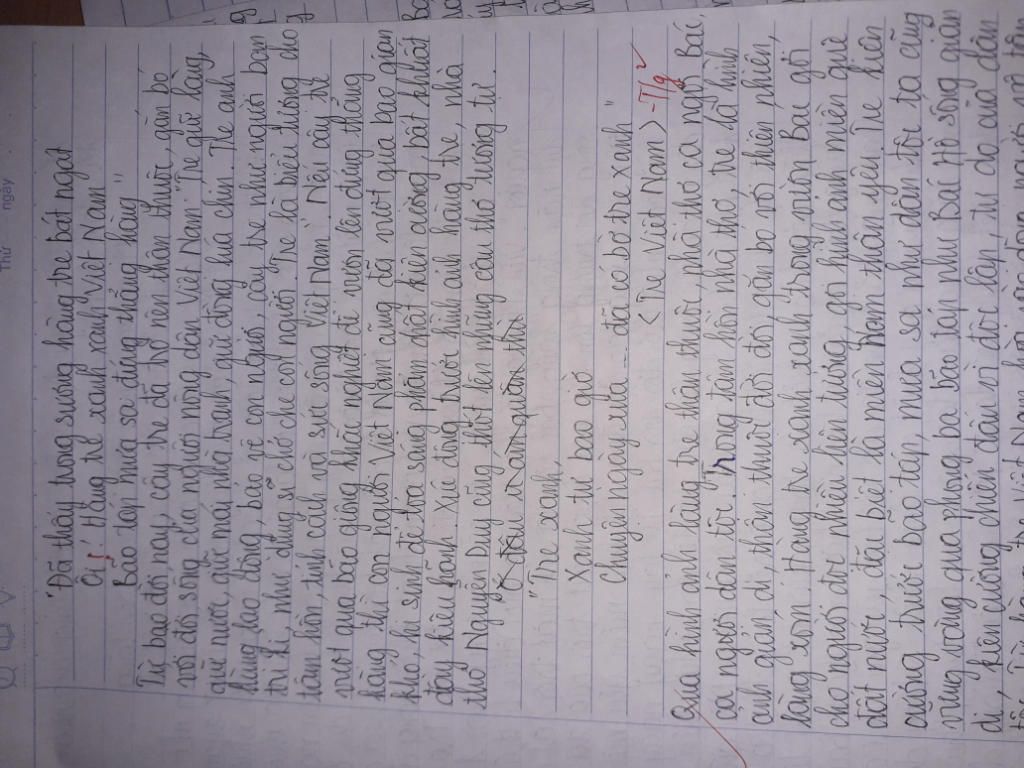 Thứ ngày
"Đã thấy trong sương hàng tre bát ngát
Ôi! Hàng tre xanh xanh Việt Nam
Bão táp mưa sa đứng thẳng hàng"
Từ bao đời nay, cây tre đã trở nên thân thuộc, gắn bó
với đời sống của người nông dân Việt Nam. "Tre giữ làng,
giữ nước, giữ mái nhà tranh, giữ đồng lúa chín. Tre anh
hùng lao động, bảo vệ con người", cây tre như người bạn
tri kỉ, như dũng sĩ chở che con người. Tre là biểu tượng cho
tâm hồn, tính cách và sức sống Việt Nam. Nếu cây tre
vượt qua bão giông, khắc nghiệt để vươn lên đứng thẳng
hàng thì con người Việt Nam cũng đã vượt qua bao gian
khó, hi sinh để tỏa sáng phẩm chất kiên cường, bất khuất
đầy kiêu hãnh. Xúc động trước hình ảnh hàng tre, nhà
thơ Nguyễn Duy cũng thốt lên những câu thơ tương tự.
"Tre xanh,
Xanh tự bao giờ
Chuyện ngày xưa... đã có bờ tre xanh"
< Tre Việt Nam > - T/g
Qua hình ảnh hàng tre thân thuộc, nhà thơ ca ngợi Bác,
ca ngợi dân tộc. Trong tâm hồn nhà thơ, tre là hình
ảnh giản dị, thân thuộc đời đời gắn bó với thiên nhiên,
làng xóm. Hàng tre xanh xanh trong vườn Bác gợi
cho người đọc nhiều liên tưởng, gợi hình ảnh miền quê
đất nước, đặc biệt là miền Nam thân yêu. Tre kiên
cường trước bão táp, mưa sa như dân tộc ta cũng
vững vàng qua phong ba bão táp như Bác Hồ sống giản
dị, kiên cường chiến đấu vì độc lập, tự do của dân